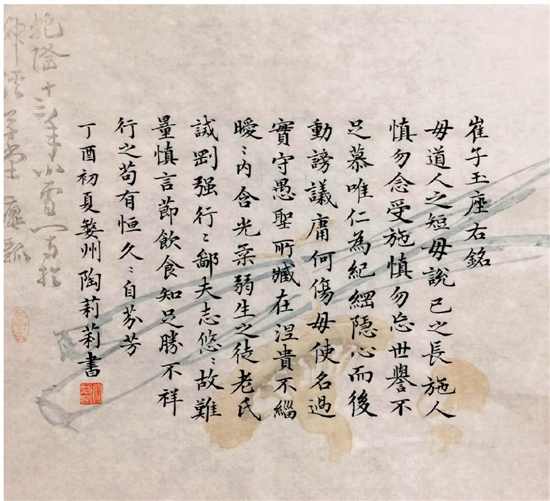 崔子玉座右銘
毋道人之短毋說己之長施人
慎勿念受施慎勿忘世譽不
足慕唯仁為紀綱隱心而後
動謗議庸何傷毋使名過
實守愚聖所臧在涅貴不緇
曖〻內含光柔弱生之徒老氏
誡剛强行〻鄙夫志悠〻故難
量慎言節飲食知足勝不祥
行之苟有恒久〻自芬芳
丁酉初夏婺州陶莉莉書
乾隆十三年小雪